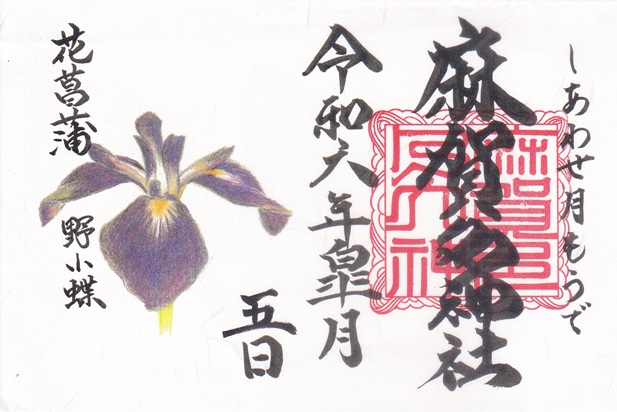 しあわせ月もうで
麻賀多神社
令和六年皐月
五日
花菖蒲
野小蝶